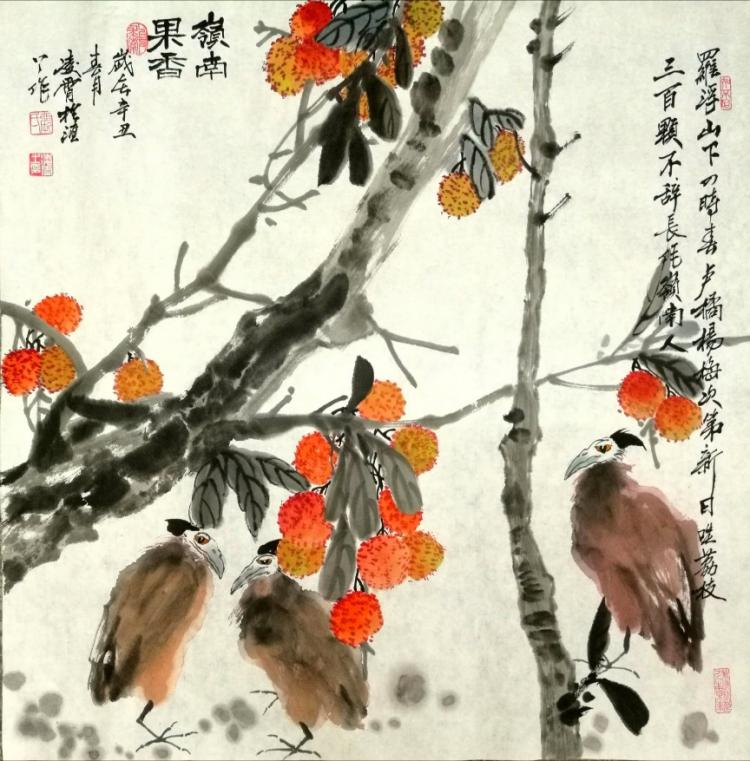 羅浮山下四時春卢橘楊梅次第新日啖荔枝
三百顆不辭長作嶺南人
嶺南
果香
歲在辛丑
春月
凌霄於滬
上作